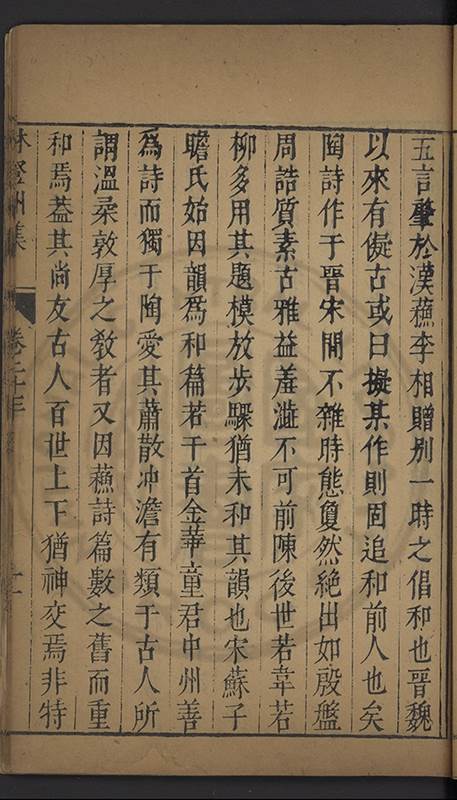 五言肇於漢蘓李相贈别一時之倡和也晋魏
以來有儗古或曰擬某作則固追和前人也矣
陶詩作于晋宋間不雜時態敻然絶出如殷盤
周誥質素古雅益羞澁不可前陳後世若韋若
柳多用其題模放步驟猶未和其韻也宋蘇子
瞻氏始因韻爲和篇若干首金華童君中州善
爲詩而獨于陶愛其蕭散冲澹有類于古人所
謂溫柔敦厚之教者又因蘓詩篇數之舊而重
和焉葢其尚友古人百世上下猶神交焉非特
林登州集 卷之十